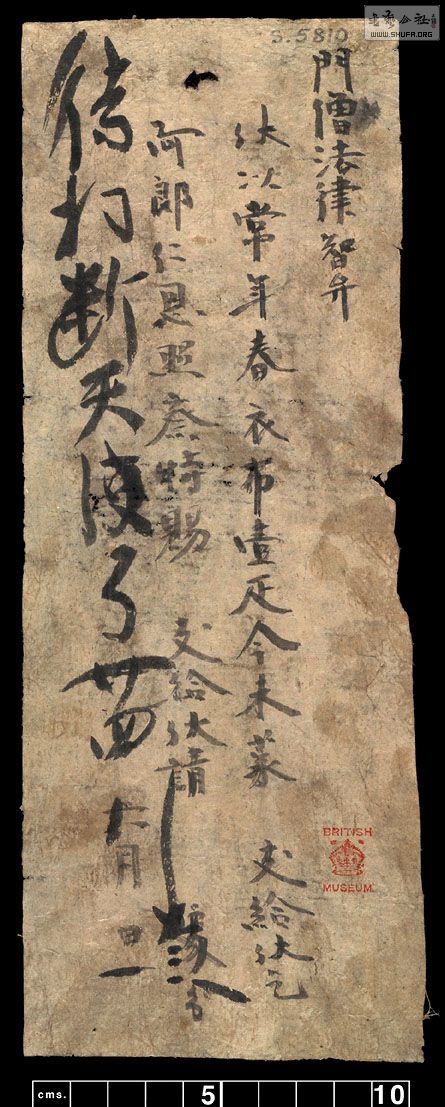 S.5810
書藝公社
WWW.SHUFA.ORG
門僧法律智弁
伏以常年春衣布壹疋今未蒙 支給伏乞
阿郎仁恩照察特賜 支給伏請 處分
待打斷天使了
六月 日
BRITISH
MUSEUM
cms. 5 10